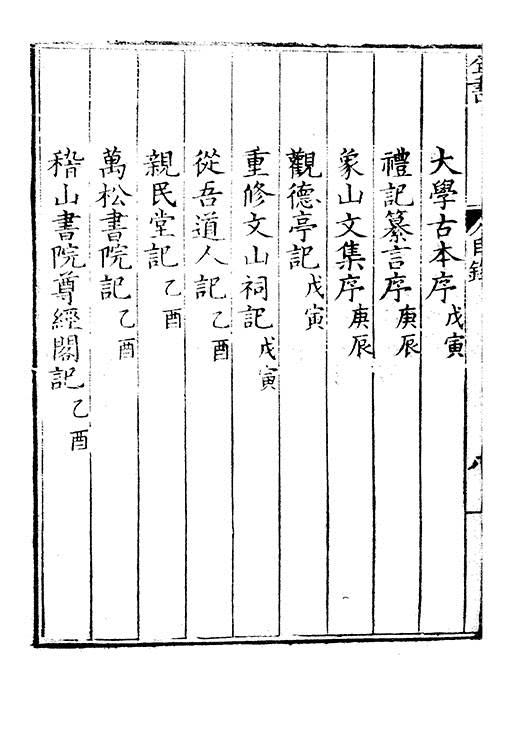 大學古本序戊寅
禮記纂言序庚辰
象山文集序庚辰
觀德亭記戊寅
重修文山祠記戊寅
從吾道人記乙酉
親民堂記乙酉
萬松書院記乙酉
稽山書院尊經閣記乙酉